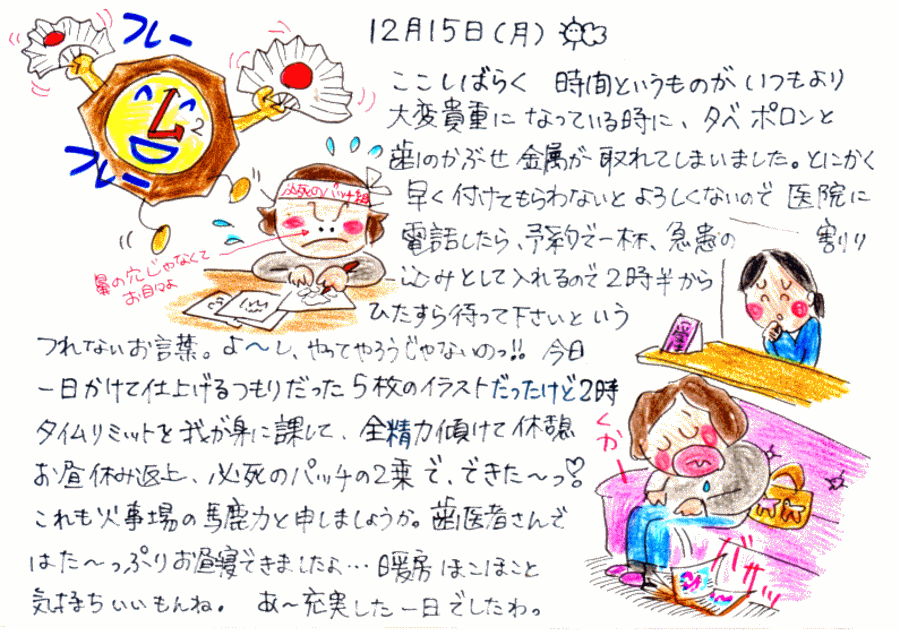 フレー
フレー
12月15日(月)
ここしばらく 時間というものが いつもより
大変貴重に なっている時に、夕べ ポロンと
歯のかぶせ 金属が 取れてしまいました。とにかく
早く付けてもらわないと よろしくないので 医院に
電話したら、予約で一杯、急患の 割り
込みとして入れるので 2時半から
ひたすら待って下さいという
つれないお言葉。よ〜し、やってやろうじゃないのっ!! 今日
一日かけて仕上げるつもりだった 5枚のイラストだったけど2時
タイムリミットを我が身に課して、全精力傾けて休憩
お昼休み返上、必死のパッチの2乗で、できた〜っ♡
これも火事場の馬鹿力と申しましょうか。歯医者さんで
はた〜っぷりお昼寝できましたよ…暖房ほこほこと
気持ちいいもんね。 あ〜充実した一日でしたわ。
2
必死のパッチ組
鼻の穴じゃなくて
お目々よ
くかー
バサバサッ